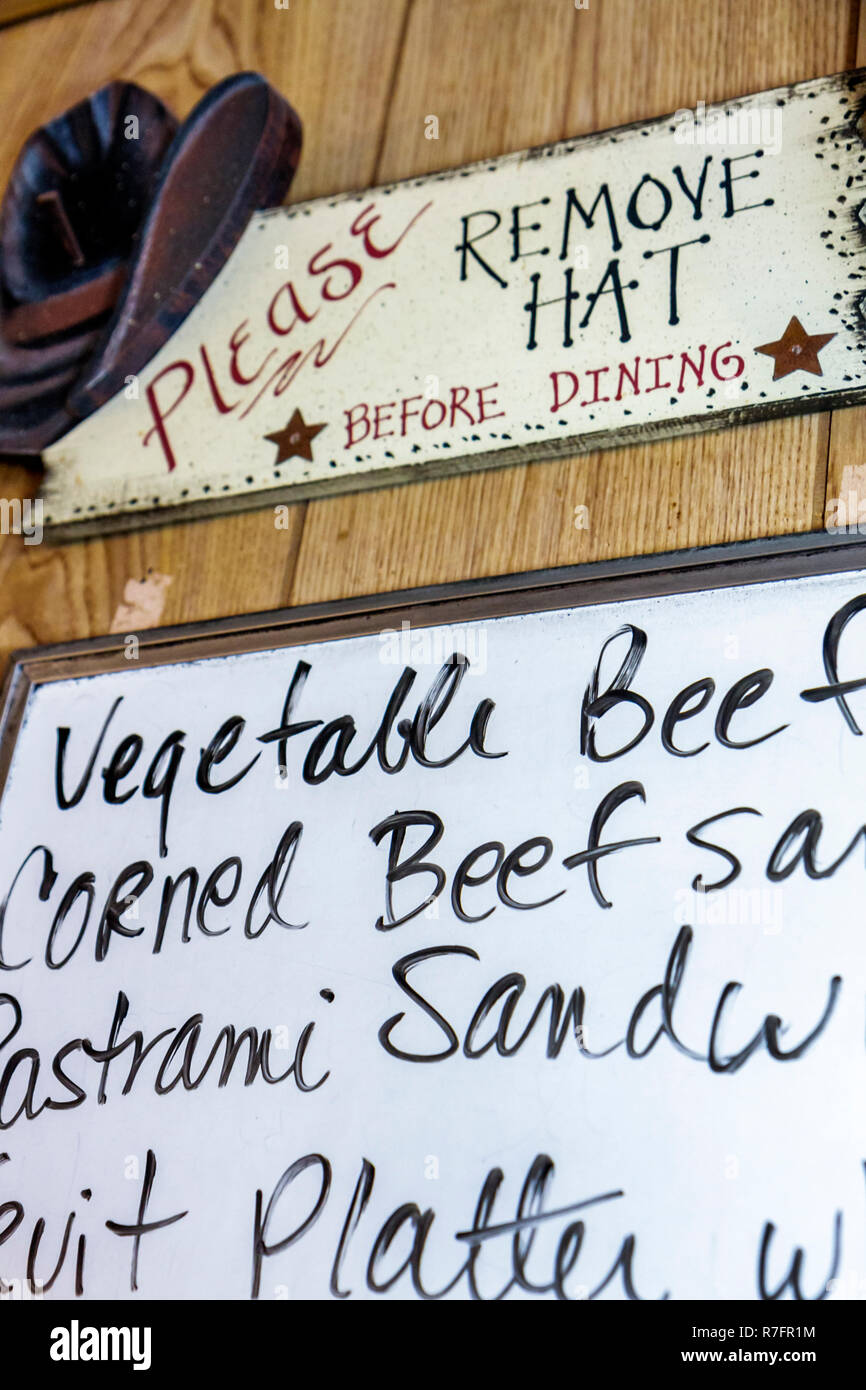 Please REMOVE
HAT
BEFORE DINING
Vegetable Beef
Corned Beef sa
Pastrami Sandw
ruit Platter w
alamy
Image ID: R7FR1M
www.alamy.com